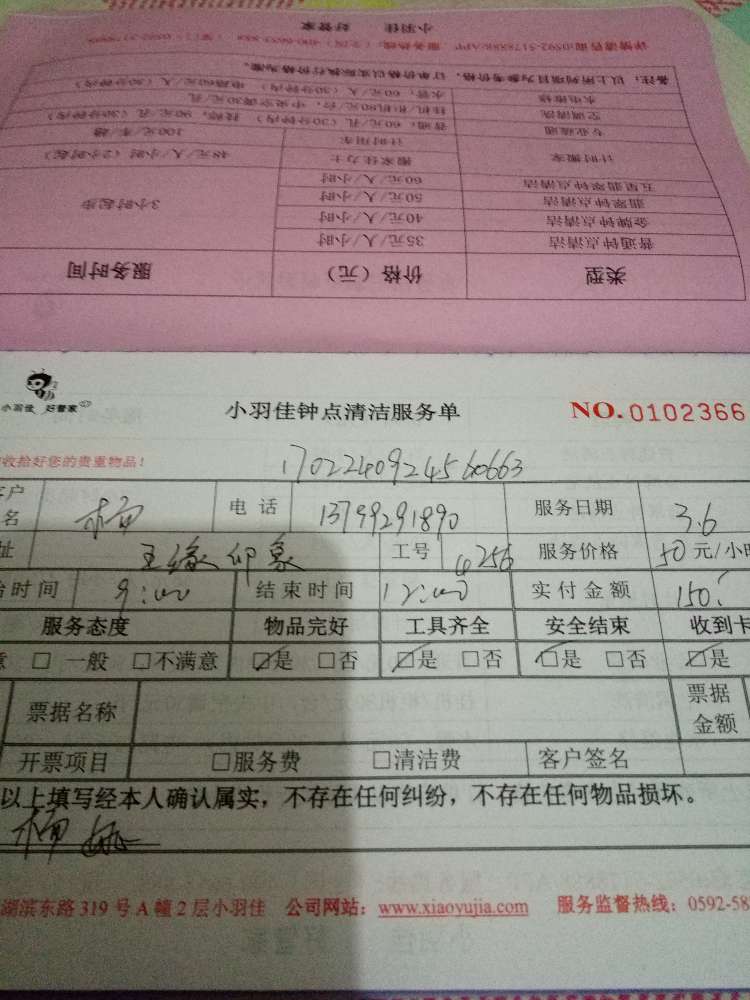 小羽佳 好管家
详情请咨询:0592-5178888/APP 服务热线:(全国)400-6093-888
备注:以上所列项目为参考价格,订单价格以实际执行价格为准。
水电维修 水管:60元/人(30分钟内) 电路60元/人(30分钟内)
空调清洗 挂机/柜机80元/台,中央空调30元/孔
专业疏通 普通:60元/孔(30分钟内) 90元/孔(30分钟内)
计时用车 100元/车·趟
计时搬家 搬家佳力士 48元/人/小时(2小时起)
五星翡翠钟点清洁 60元/人/小时
翡翠钟点清洁 50元/人/小时 3小时起步
金牌钟点清洁 40元/人/小时
普通钟点清洁 35元/人/小时
类型 价格(元) 服务时间
小羽佳 好管家
小羽佳钟点清洁服务单
NO.0102366
收拾好您的贵重物品!
客户
名
电话 13799291890 服务日期 3.6
址 工号 4256 服务价格 50元/小时
始时间 9:00 结束时间 12:00 实付金额 150.
服务态度 物品完好 工具齐全 安全结束 收到卡
意 □一般 □不满意 ☑是 □否 ☑是 □否 ☑是 □否 ☑是
票据名称 票据
金额
开票项目 □服务费 □清洁费 客户签名
以上填写经本人确认属实,不存在任何纠纷,不存在任何物品损坏。
湖滨东路319号A幢2层小羽佳 公司网站:www.xiaoyujia.com 服务监督热线:0592-58